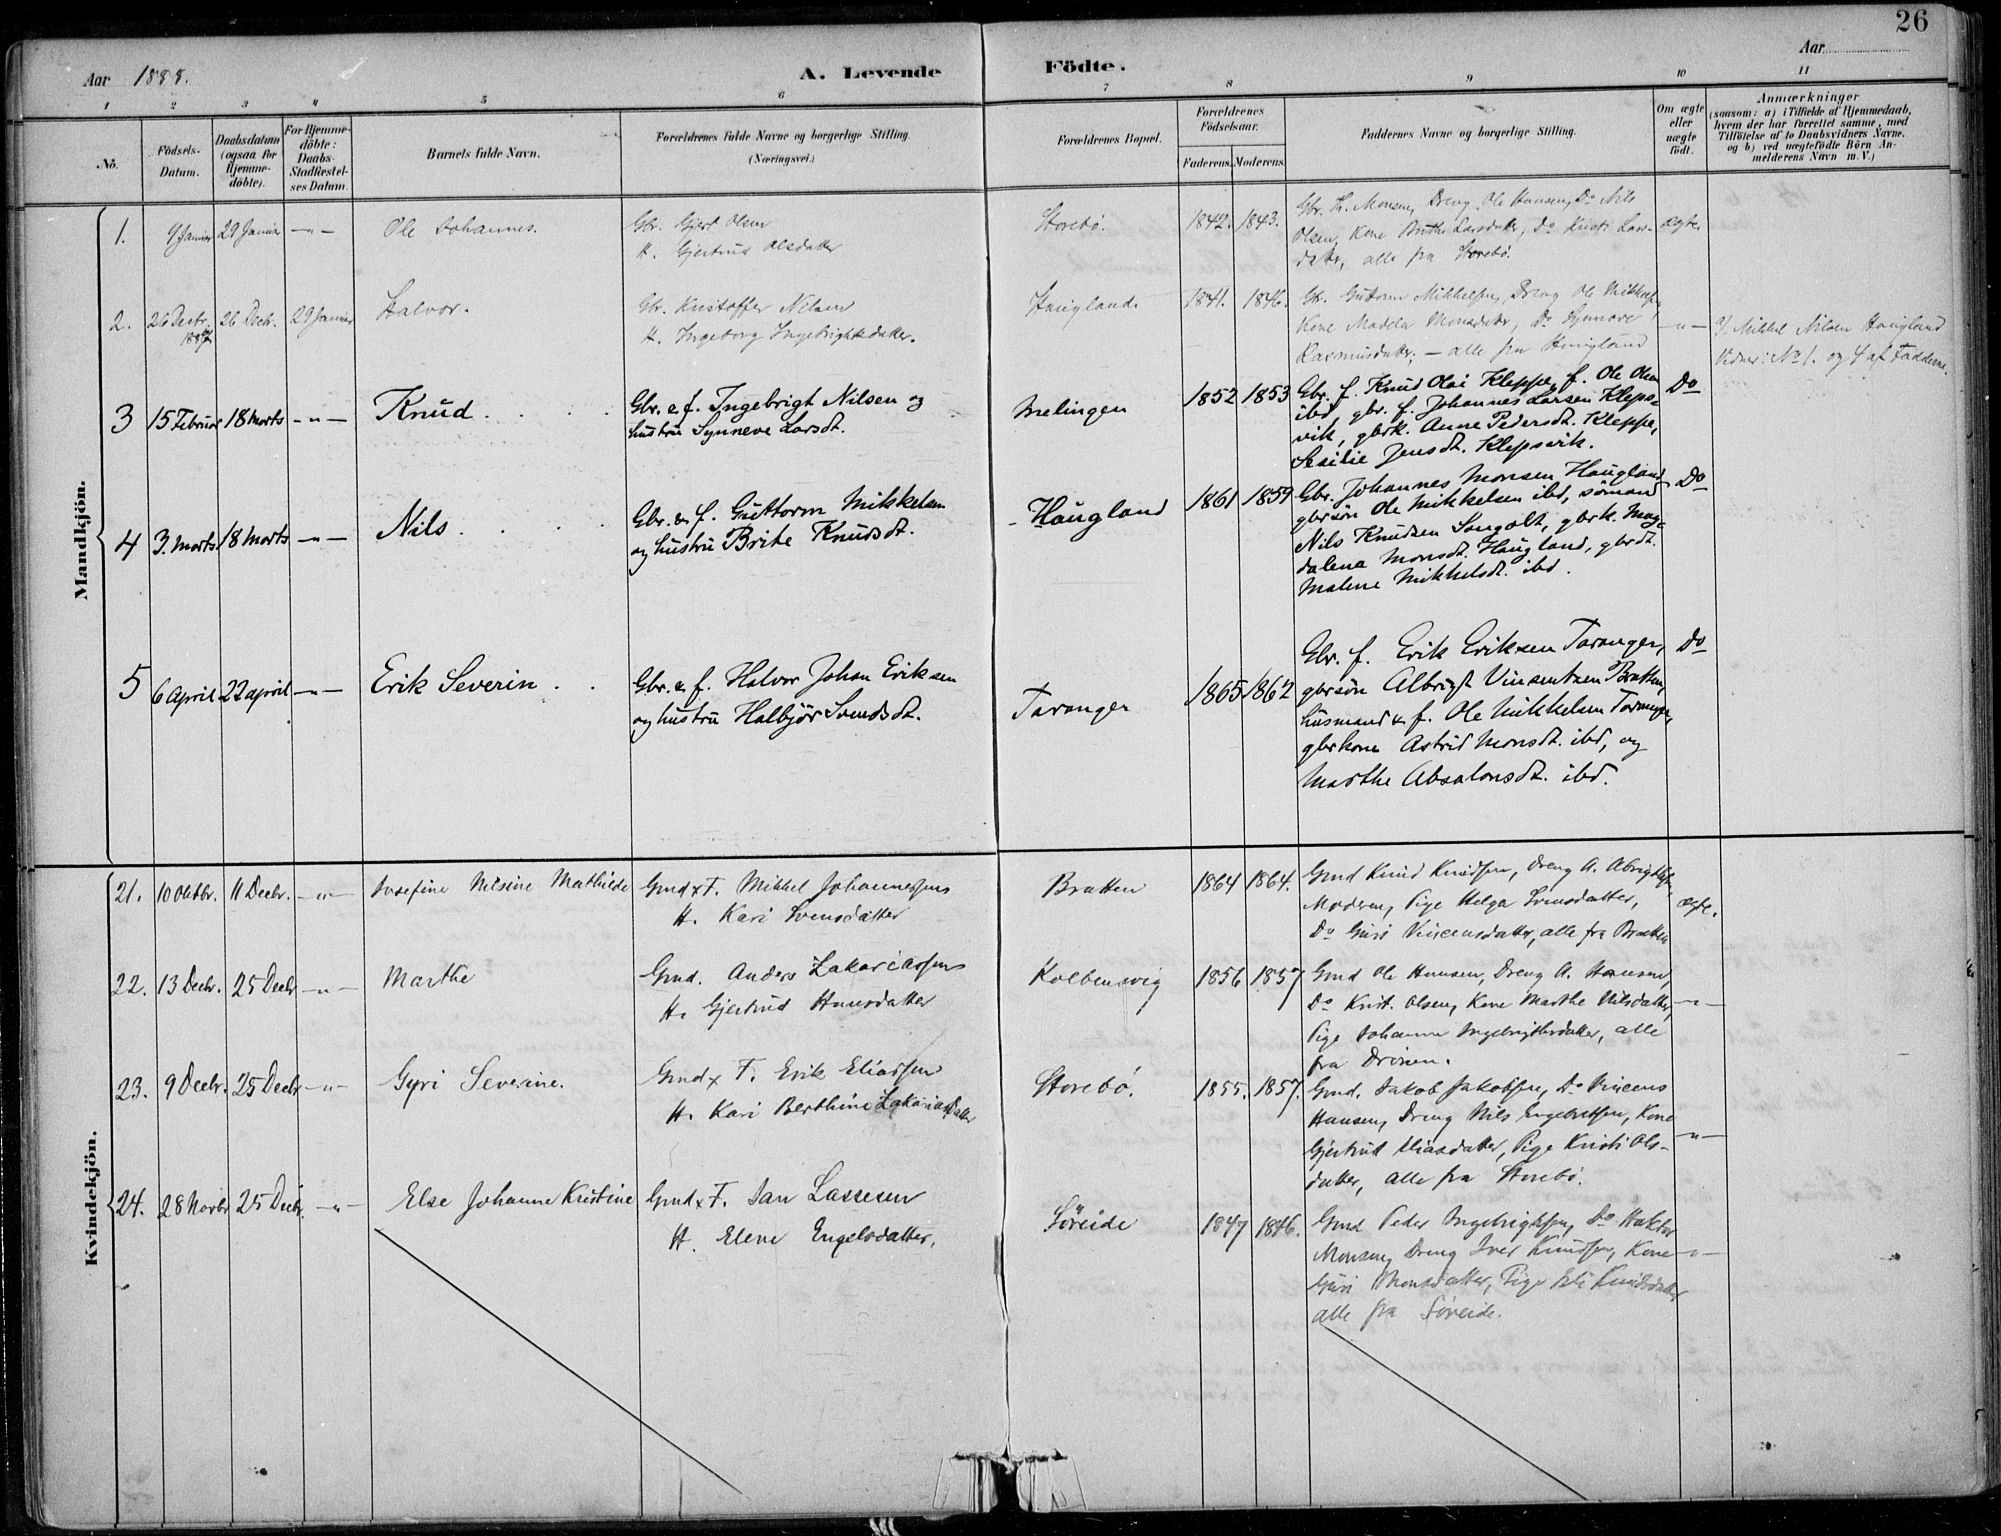 26
Aar 1888.
A. Levende Födte.
Aar
1 2 3 4 5 6 7 8 9 10 11
No.
Födsels-Datum.
Daabsdatum (ogsaa for Hjemme-döbte).
For Hjemme-döbte: Daabs-Stadfæstel-ses Datum.
Barnets fulde Navn.
Forældrenes fulde Navne og borgerlige Stilling.
(Næringsvei.)
Forældrenes Bopæl.
Forældrenes Födselsaar.
Faderens. Moderens.
Faddernes Navne og borgerlige Stilling.
Om ægte eller uægte födt.
Anmærkninger
(saasom: a) i Tilfælde af Hjemmedaab,
hvem der har forrettet samme, med
Tilföielse af to Daabsvidners Navne.
og b) ved uægtefödte Börn An-
melderens Navn m. V.)
Mandkjön.
1. 9 Januar 29 Januar -"- Ole Johannes. Gbr. Gjert Olsen
H. Gjertrud Olsdatter
Storebö. 1842. 1843.
Gbr. H. Monsen, Dreng Ole Hansen, Do Nils
Olsen, Kone Brithe Larsdatter, Do Kristi Lars-
datter, alle fra Storebö.
ægte.
2. 26 Decbr. 1887 26 Decbr. 29 Januar Halvor. Gbr. Kristoffer Nilsen
H. Ingeborg Ingebrightsdatter.
Haugland. 1841. 1846.
Gbr. Guttorm Mikkelsen, Dreng Ole Mikkelsen,
Kone Madela Monsdatter, Do Synnove
Rasmusdatter, - alle fra Haugland
-"-
Mikkel Nilsen Haugland
Vidner: No 1. og 4 af Fadderne.
3 15 Februar 18 Marts -"- Knud. Gbr. e. f. Ingebrigt Nilsen og
hustru Synneve Larsdt.
Melingen 1852 1853
Gbr. f. Knud Olai Kleppe, f. Ole Olsen
ibd, gbr. f. Johannes Larsen Kleps-
vik, gbrk. Anne Pedersdt. Kleppe,
Sesilie Jensdt. Klepsvik.
Do
4 3. Marts 18 Marts -"- Nils. Gbr. & f. Guttorm Mikkelsen
og hustru Brite Knudsdt.
Haugland 1861 1859
Gbr. Johannes Monsen Haugland
gbrsön Ole Mikkelsen ibd, sömand
Nils Knudsen Sangolt, gbrk. Mag-
dalena Monsdt. Haugland, gbrdt.
Malene Mikkelsdt. ibd.
Do
5 6 April 22 april -"- Erik Severin. Gbr. & f. Halvor Johan Eriksen
og hustru Halbjör Svendsdt.
Taranger 1865 1862
Gbr. f. Erik Eriksen Taranger,
gbrsön Albrigt Vinsentsen Bratten,
husmand & f. Ole Mikkelsen Taranger,
gbrkone Astrid Monsdt. ibd, og
Marthe Absalonsdt. ibd.
Do
Kvindekjön.
21. 10 Oktbr. 11 Decbr. -"- Josefine Nilsine Mathilde Gmd x F. Mikkel Johannessen
H. Kari Svensdatter
Bratten 1864 1864.
Gmd Knud Knudsen, Dreng A. Abrigtsen,
Moderen, Pige Helga Svensdatter,
Do Guri Vincensdatter, alle fra Bratten
ægte.
22. 13 Decbr. 25 Decbr -"- Marthe Gmd. Anders Zakariassen
H. Gjertrud Hansdatter
Kolbensvig 1856 1857
Gmd Ole Hansen, Dreng A. Hansen,
Do Krist. Olsen, Kone Marthe Nilsdatter,
Pige Johanna Ingebrigtsdatter, alle
fra Drönen.
-"-
23. 9 Decbr. 25 Decbr -"- Gyri Severine. Gmd x F. Erik Eliassen
H. Kari Berthine Zakariasdatter
Storebö. 1855. 1857.
Gmd. Jakob Jakobsen, Do Vincens
Hansen, Dreng Nils Engelsen, Kone
Gjertrud Eliasdatter, Pige Kristi Ols-
datter, alle fra Storebö.
-"-
24. 28 Novbr 25 Decbr. -"- Else Johanne Kristine Gmd x F. Jan Lassesen
H. Elene Engelsdatter.
Söreide 1847 1846.
Gmd Peder Ingebrigtsen, Do Haktor
Monsen, Dreng Iver Knudsen, Kone
Guri Monsdatter, Pige Eli Knudsdatter
alle fra Söreide.
-"-